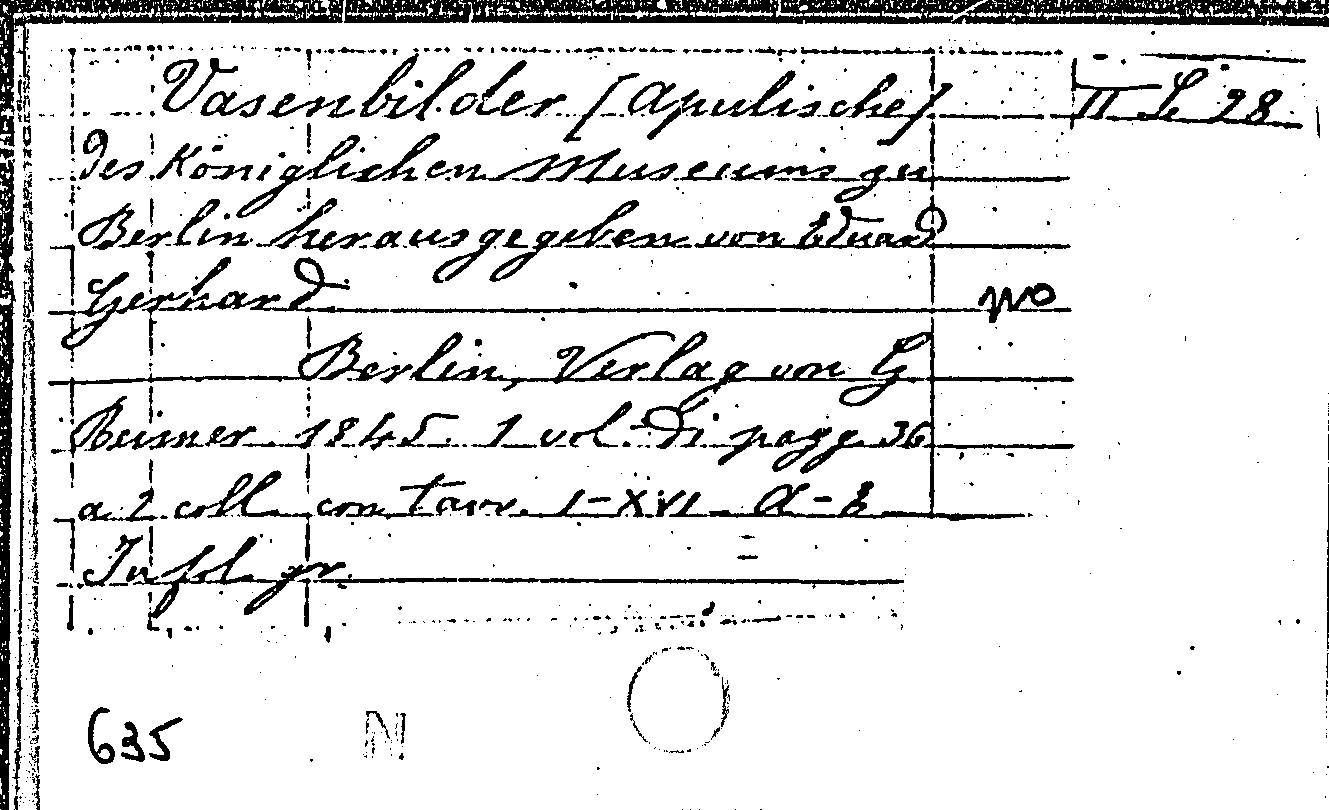 Vasenbilder [Apulische] II Le 28
des Königlichen Museums zu
Berlin herausgegeben von Eduard
Gerhard
no
Berlin, Verlag von G
Reimer 1845. 1 vol. di pagg. 36
a 2 coll. con tavv. I-XVI. A-E
In fol. gr.
635 N